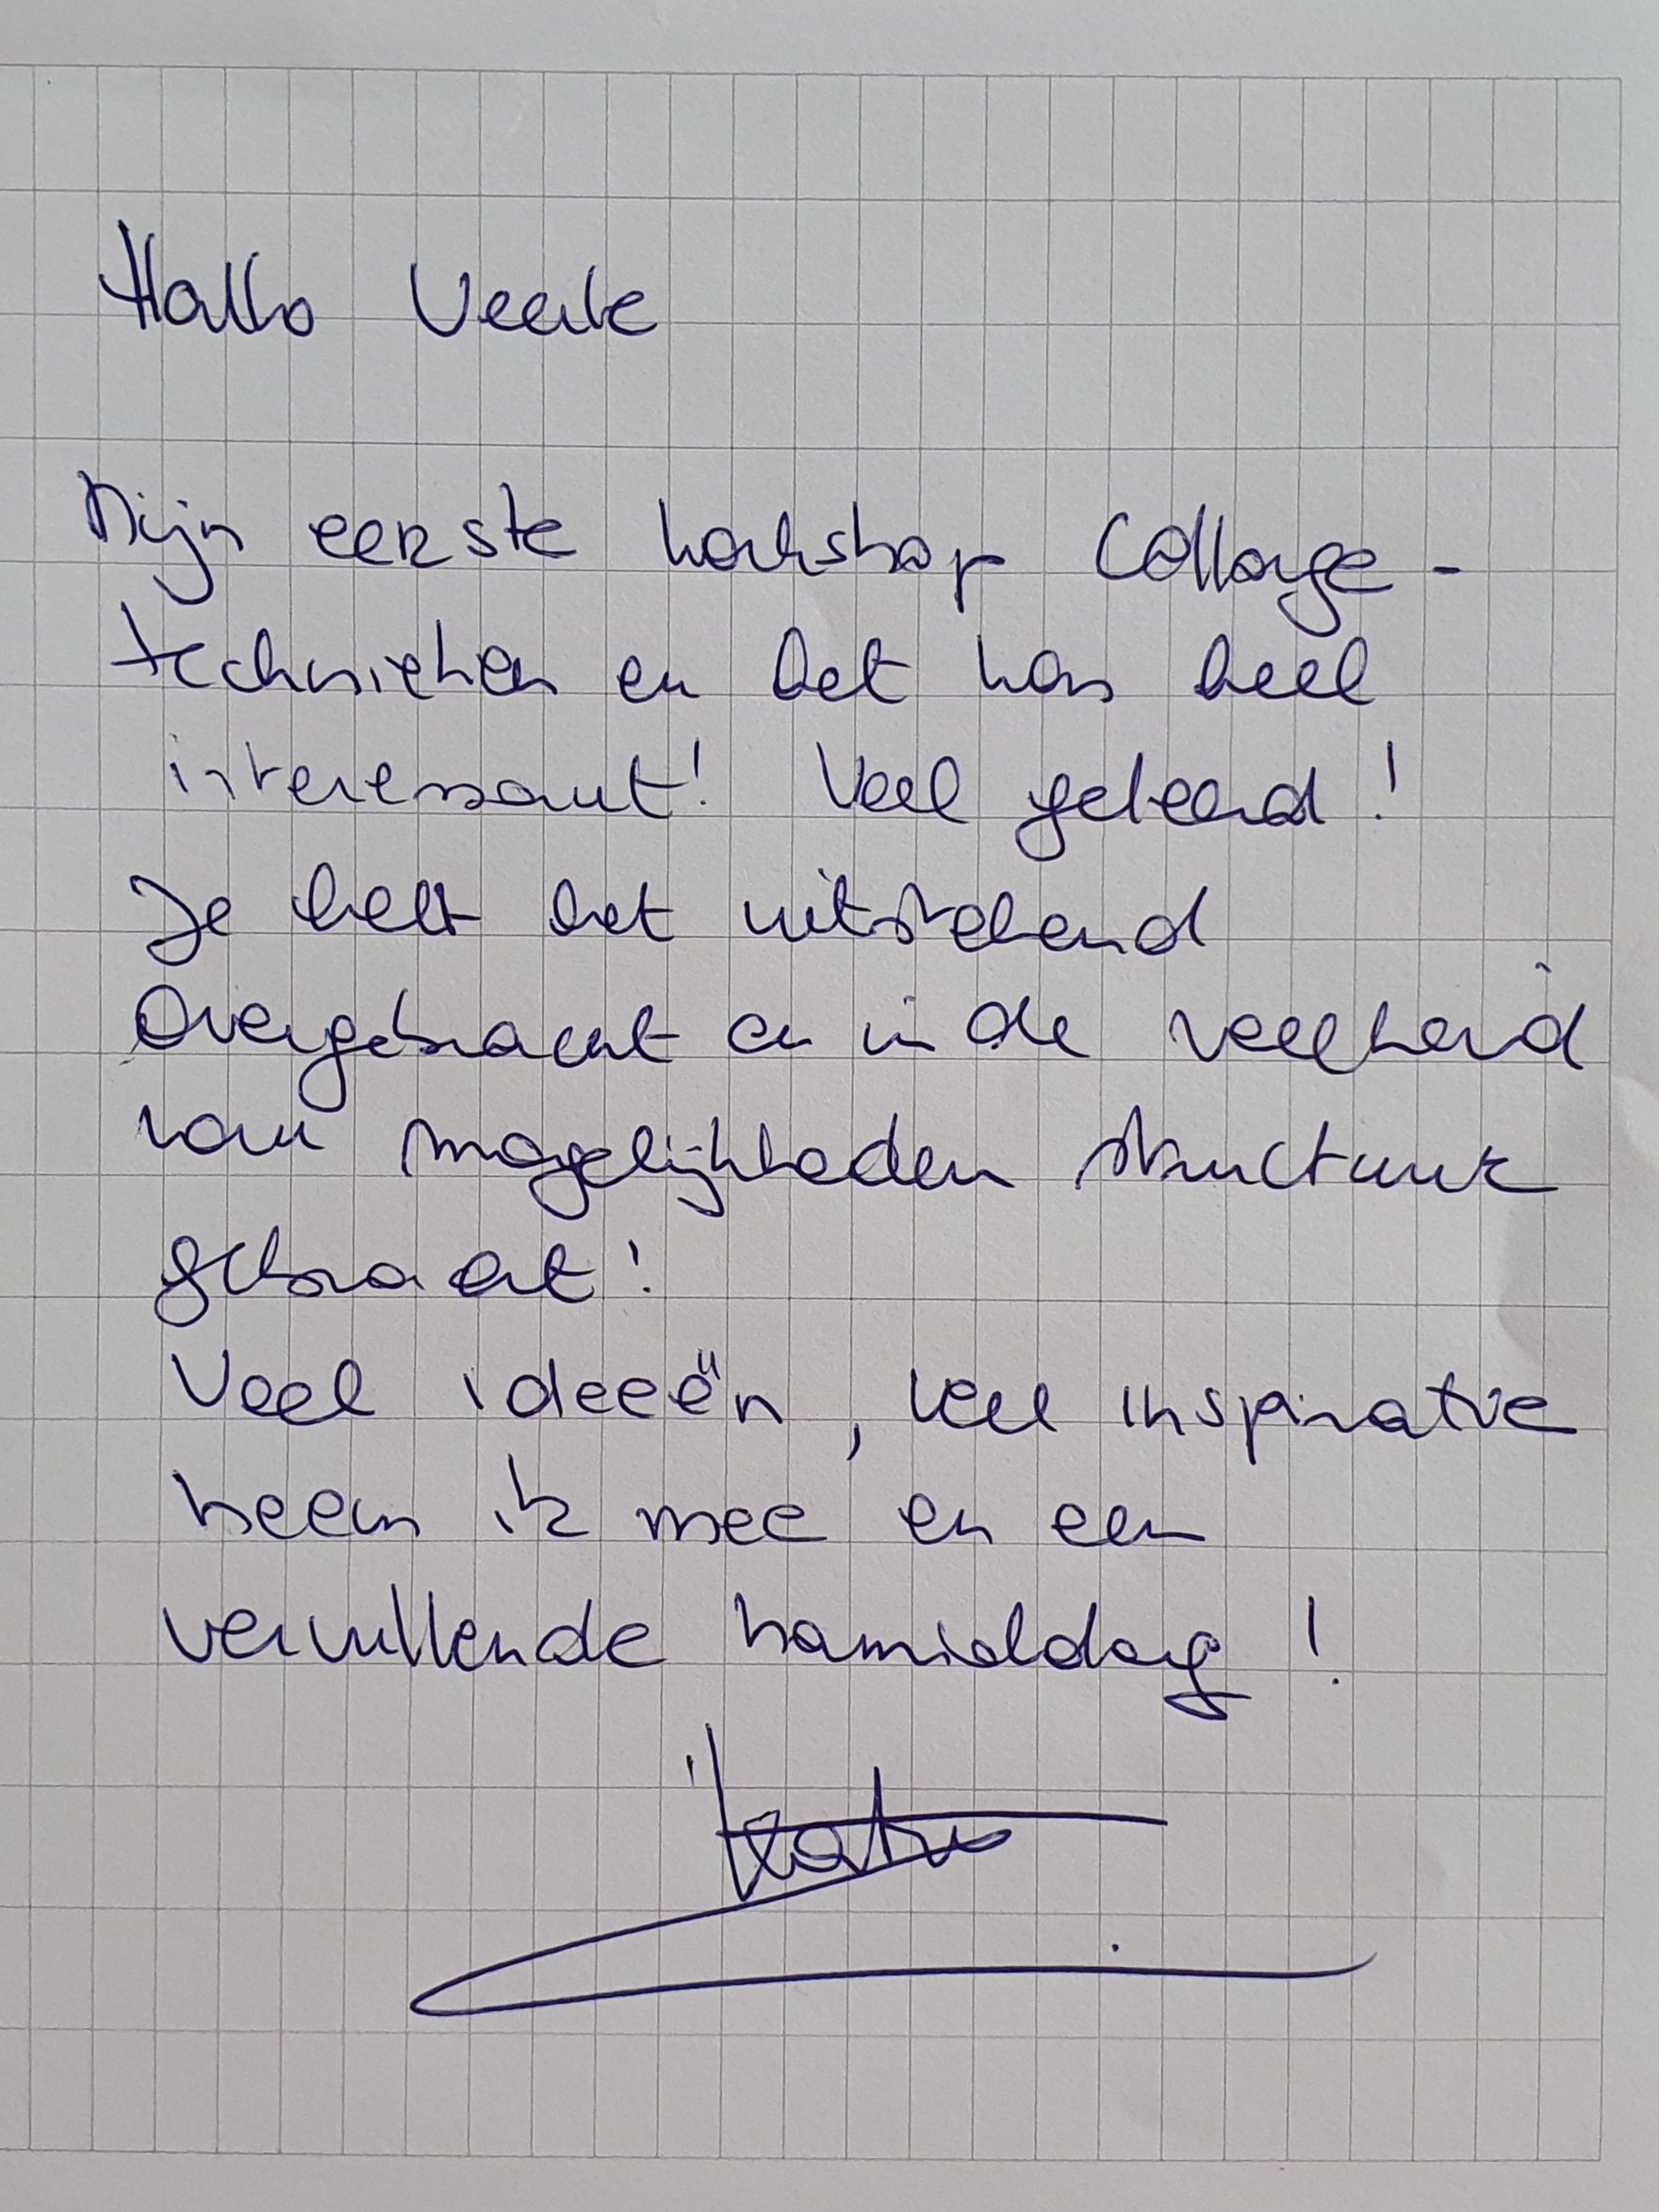 Hallo Veerle
Mijn eerste workshop Collage-
technieken en het was heel
interessant! Veel geleerd!
Je hebt het uitstekend
overgebracht en in de veelheid
van mogelijkheden structuur
gebracht!
Veel ideeën, veel inspiratie
neem ik mee en een
vervullende namiddag!